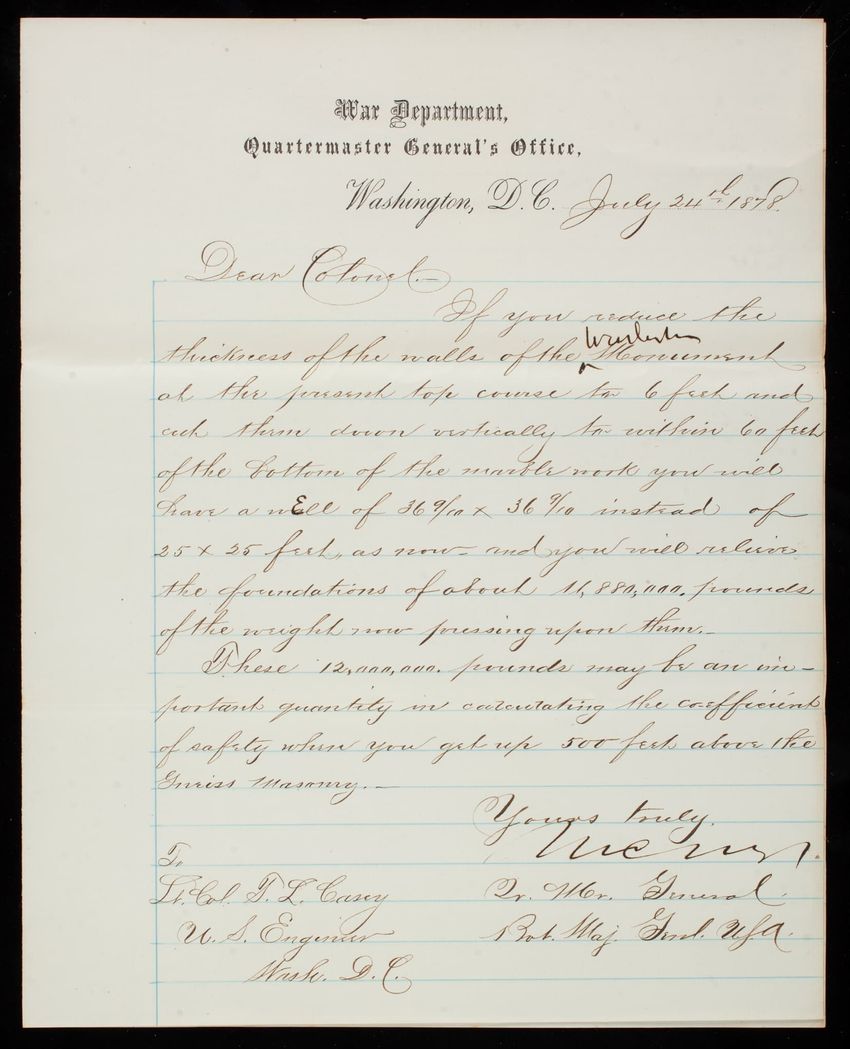 War Department,
Quartermaster General's Office,
Washington, D.C. July 24th 1878.
Dear Colonel.—
If you reduce the
Washington
thickness of the walls of the ^ Monument
at the present top course to 6 feet and
cut them down vertically to within 60 feet
of the bottom of the marble work you will
have a well of 36 9/10 x 36 9/10 instead of
25 x 25 feet, as now— and you will relieve
the foundations of about 11,880,000. pounds
of the weight now pressing upon them.—
These 12,000,000. pounds may be an im-
portant quantity in calculating the coefficient
of safety when you get up 500 feet above the
Gneiss Masonry.—
Yours truly.
To
Lt. Col. T. L. Casey
Qr. Mr. General.
U. S. Engineer
Bvt. Maj. Genl. USA.
Wash. D.C.